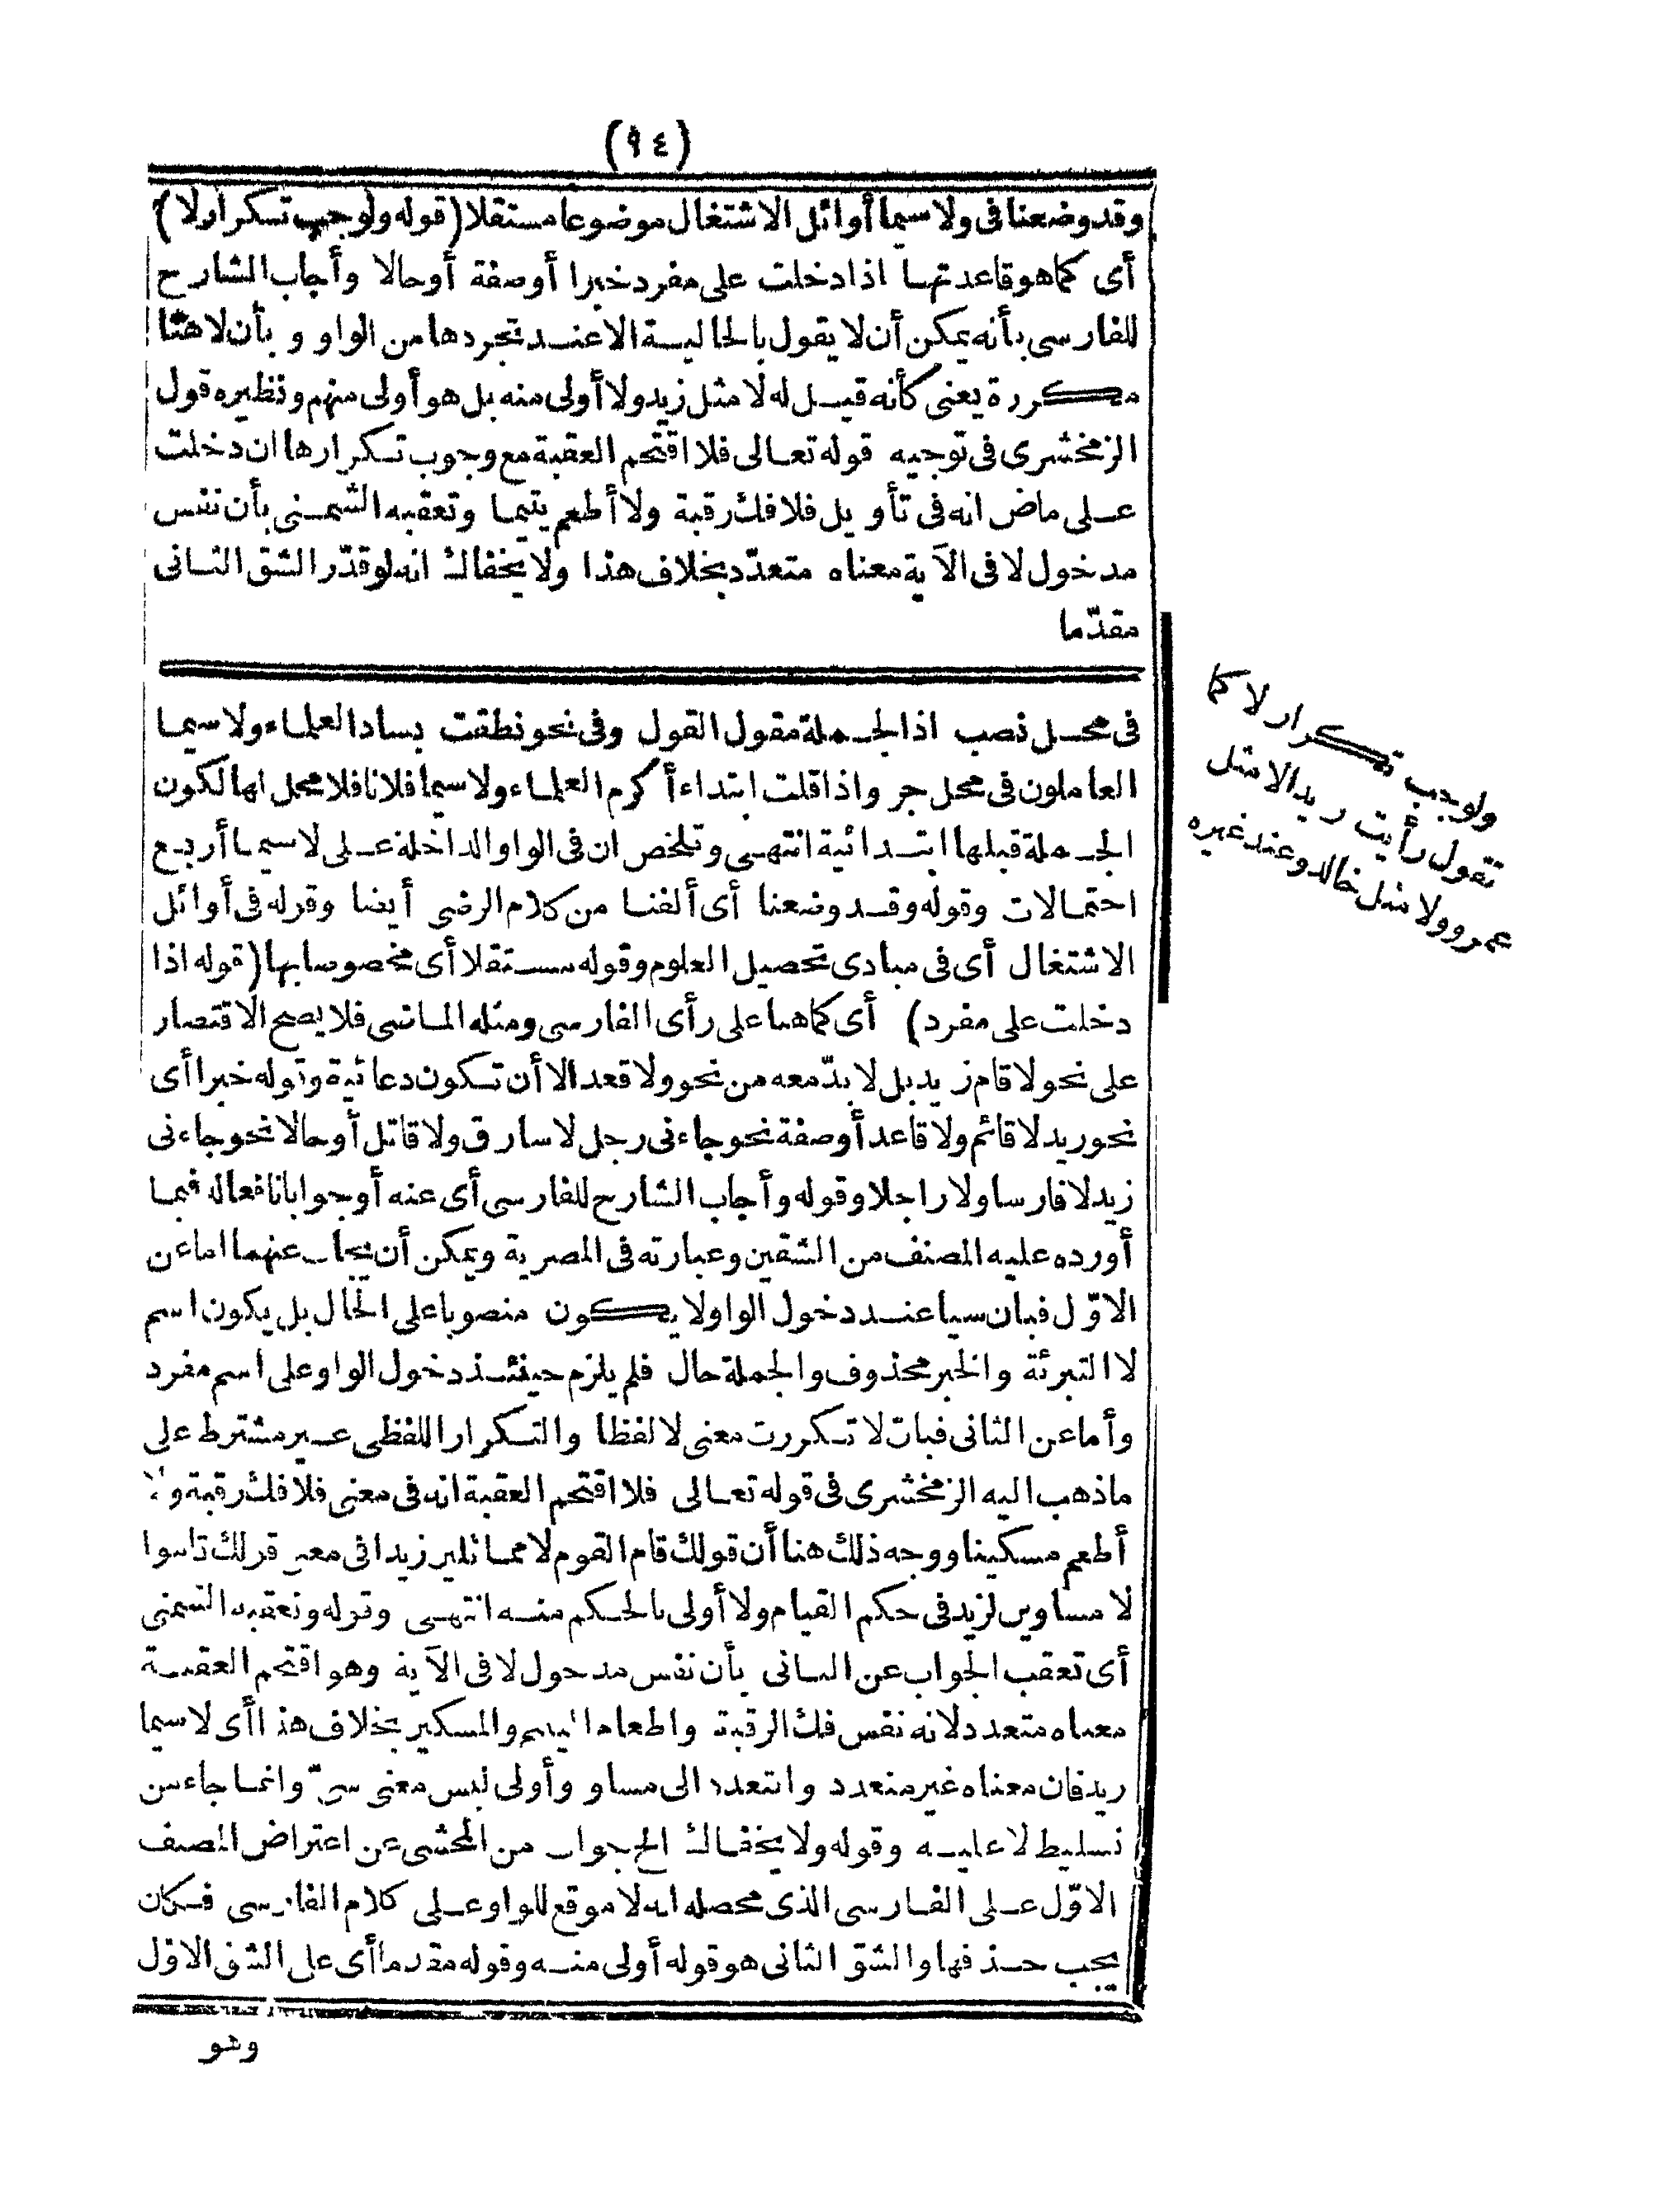 (٩٤)
وقد وضعنا فى ولا سيما أوائل الاشتغال موضوعا مستقلا (قوله ولوجب تكرار لا)
أى كما هو قاعدتها اذا دخلت على مفرد خبرا أو صفة أو حالا وأجاب الشارح
للفارسى بأنه يمكن أن لا يقول بالحالية الا عند تجردها من الواو و بأن لا هنا
مكررة يعنى كأنه قيل له لا مثل زيد ولا أولى منه بل هو أولى منهم ونظيره قول
الزمخشرى فى توجيه قوله تعالى فلا اقتحم العقبة مع وجوب تكرارها ان دخلت
على ماض انه فى تأويل فلا فك رقبة ولا أطعم يتيما وتعقبه الشمنى بأن نفس
مدخول لا فى الآية معناه متعدّد بخلاف هذا ولا يخفاك انه لو قدّر الشق الثانى
مقدّما
ولوجب تكرار لا كما
تقول رأيت زيدا لا مثل
عمرو ولا مثل خالد وعند غيره
فى محل نصب اذا الجملة مقول القول وفى نحو نطقت بسادا العلماء ولا سيما
العاملون فى محل جر واذا قلت ابتداء أكرم العلماء ولا سيما فلانا فلا محل لها لكون
الجملة قبلها ابتدائية انتهى وتلخص ان فى الواو الداخلة على لا سيما أربع
احتمالات وقوله وقد وضعنا أى ألفنا من كلام الرضى أيضا وقوله فى أوائل
الاشتغال أى فى مبادى تحصيل العلوم وقوله مستقلا أى مخصوصا بها (قوله اذا
دخلت على مفرد) أى كما هنا على رأى الفارسى ومثله الماضى فلا يصح الاقتصار
على نحو لا قام زيد بل لا بدّ معه من نحو ولا قعد الا أن تكون دعائية وقوله خبرا أى
نحو زيد لا قائم ولا قاعد أو صفة نحو جاءنى رجل لا سارق ولا قاتل أو حالا نحو جاءنى
زيد لا فارسا ولا راجلا وقوله وأجاب الشارح للفارسى أى عنه أو جوابا نافعا له فيما
أورده عليه المصنف من الشقين وعبارته فى المصرية ويمكن أن يجاب عنهما اما عن
الاوّل فبان سيا عند دخول الواو لا يكون منصوبا على الحال بل يكون اسم
لا التبرئة والخبر محذوف والجملة حال فلم يلزم حينئذ دخول الواو على اسم مفرد
وأما عن الثانى فبان لا تكررت معنى لا لفظا والتكرار اللفظى غير مشترط على
ما ذهب اليه الزمخشرى فى قوله تعالى فلا اقتحم العقبة انه فى معنى فلا فك رقبة ولا
أطعم مسكينا ووجه ذلك هنا أن قولك قام القوم لا مماثلين زيدا فى معنى قولك قاموا
لا مساوين لزيد فى حكم القيام ولا أولى بالحكم منه انتهى وقوله وتعقبه الشمنى
أى تعقب الجواب عن الثانى بأن نفس مدخول لا فى الآية وهو اقتحم العقبة
معناه متعدد لانه نفس فك الرقبة واطعام اليتيم والمسكين بخلاف هذا أى لا سيما
زيد فان معناه غير متعدد والتعدد الى مساو وأولى ليس معنى سىّ وانما جاء من
تسليط لا عليه وقوله ولا يخفاك الخ جواب من المحشى عن اعتراض المصنف
الاوّل على الفارسى الذى محصله انه لا موقع للواو على كلام الفارسى فكان
يجب حذفها والشق الثانى هو قوله أولى منه وقوله مقدما أى على الشق الاوّل
وهو